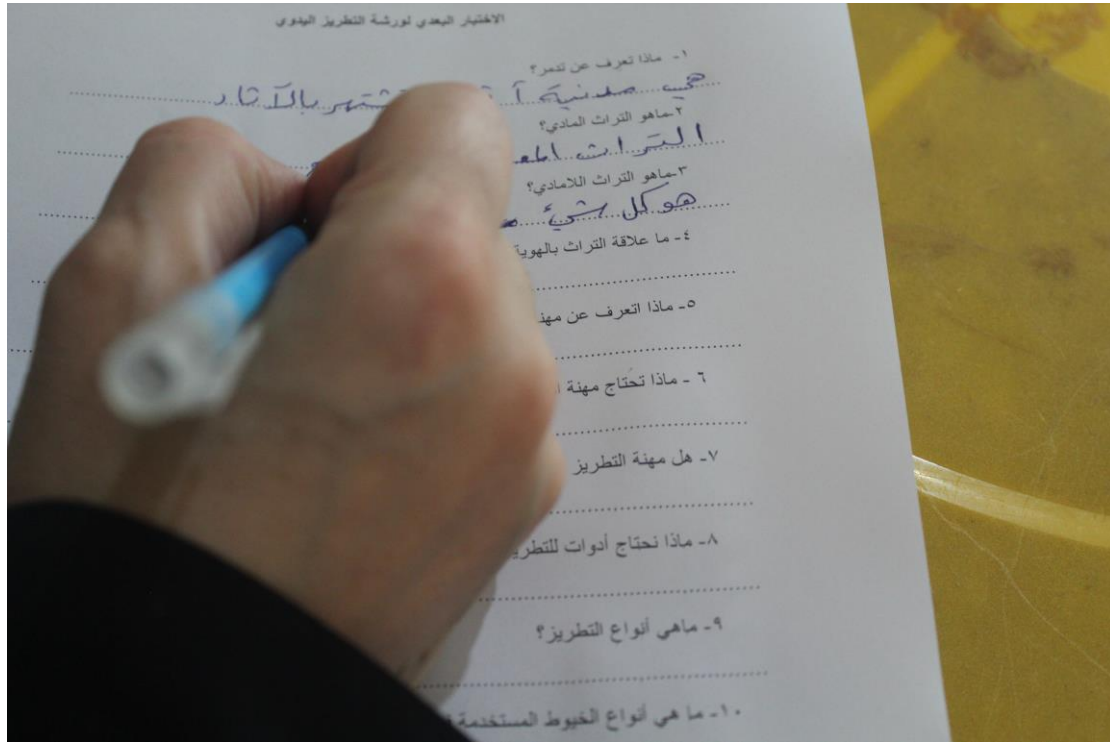 الاختبار البعدي لورشة التطريز اليدوي
١- ماذا تعرف عن تدمر؟
هي مدنية تشتهر بالآثار
٢-ماهو التراث المادي؟
التراث
٣-ماهو التراث اللامادي؟
هو كل شيئ
٤- ما علاقة التراث بالهوية
٥- ماذا اتعرف عن
٦ - ماذا تحتاج مهنة
٧- هل مهنة التطريز
٨- ماذا نحتاج أدوات
٩- ماهي أنواع التطريز؟
١٠- ما هي أنواع الخيوط المستخدمة